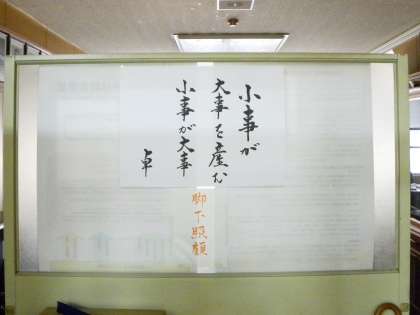 小事が
大事を産む
小事が大事
卓
脚下照顧